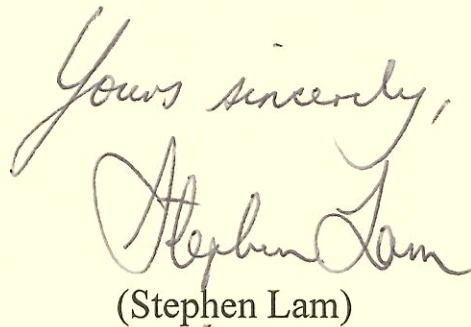 Yours sincerely,
Stephen Lam
(Stephen Lam)